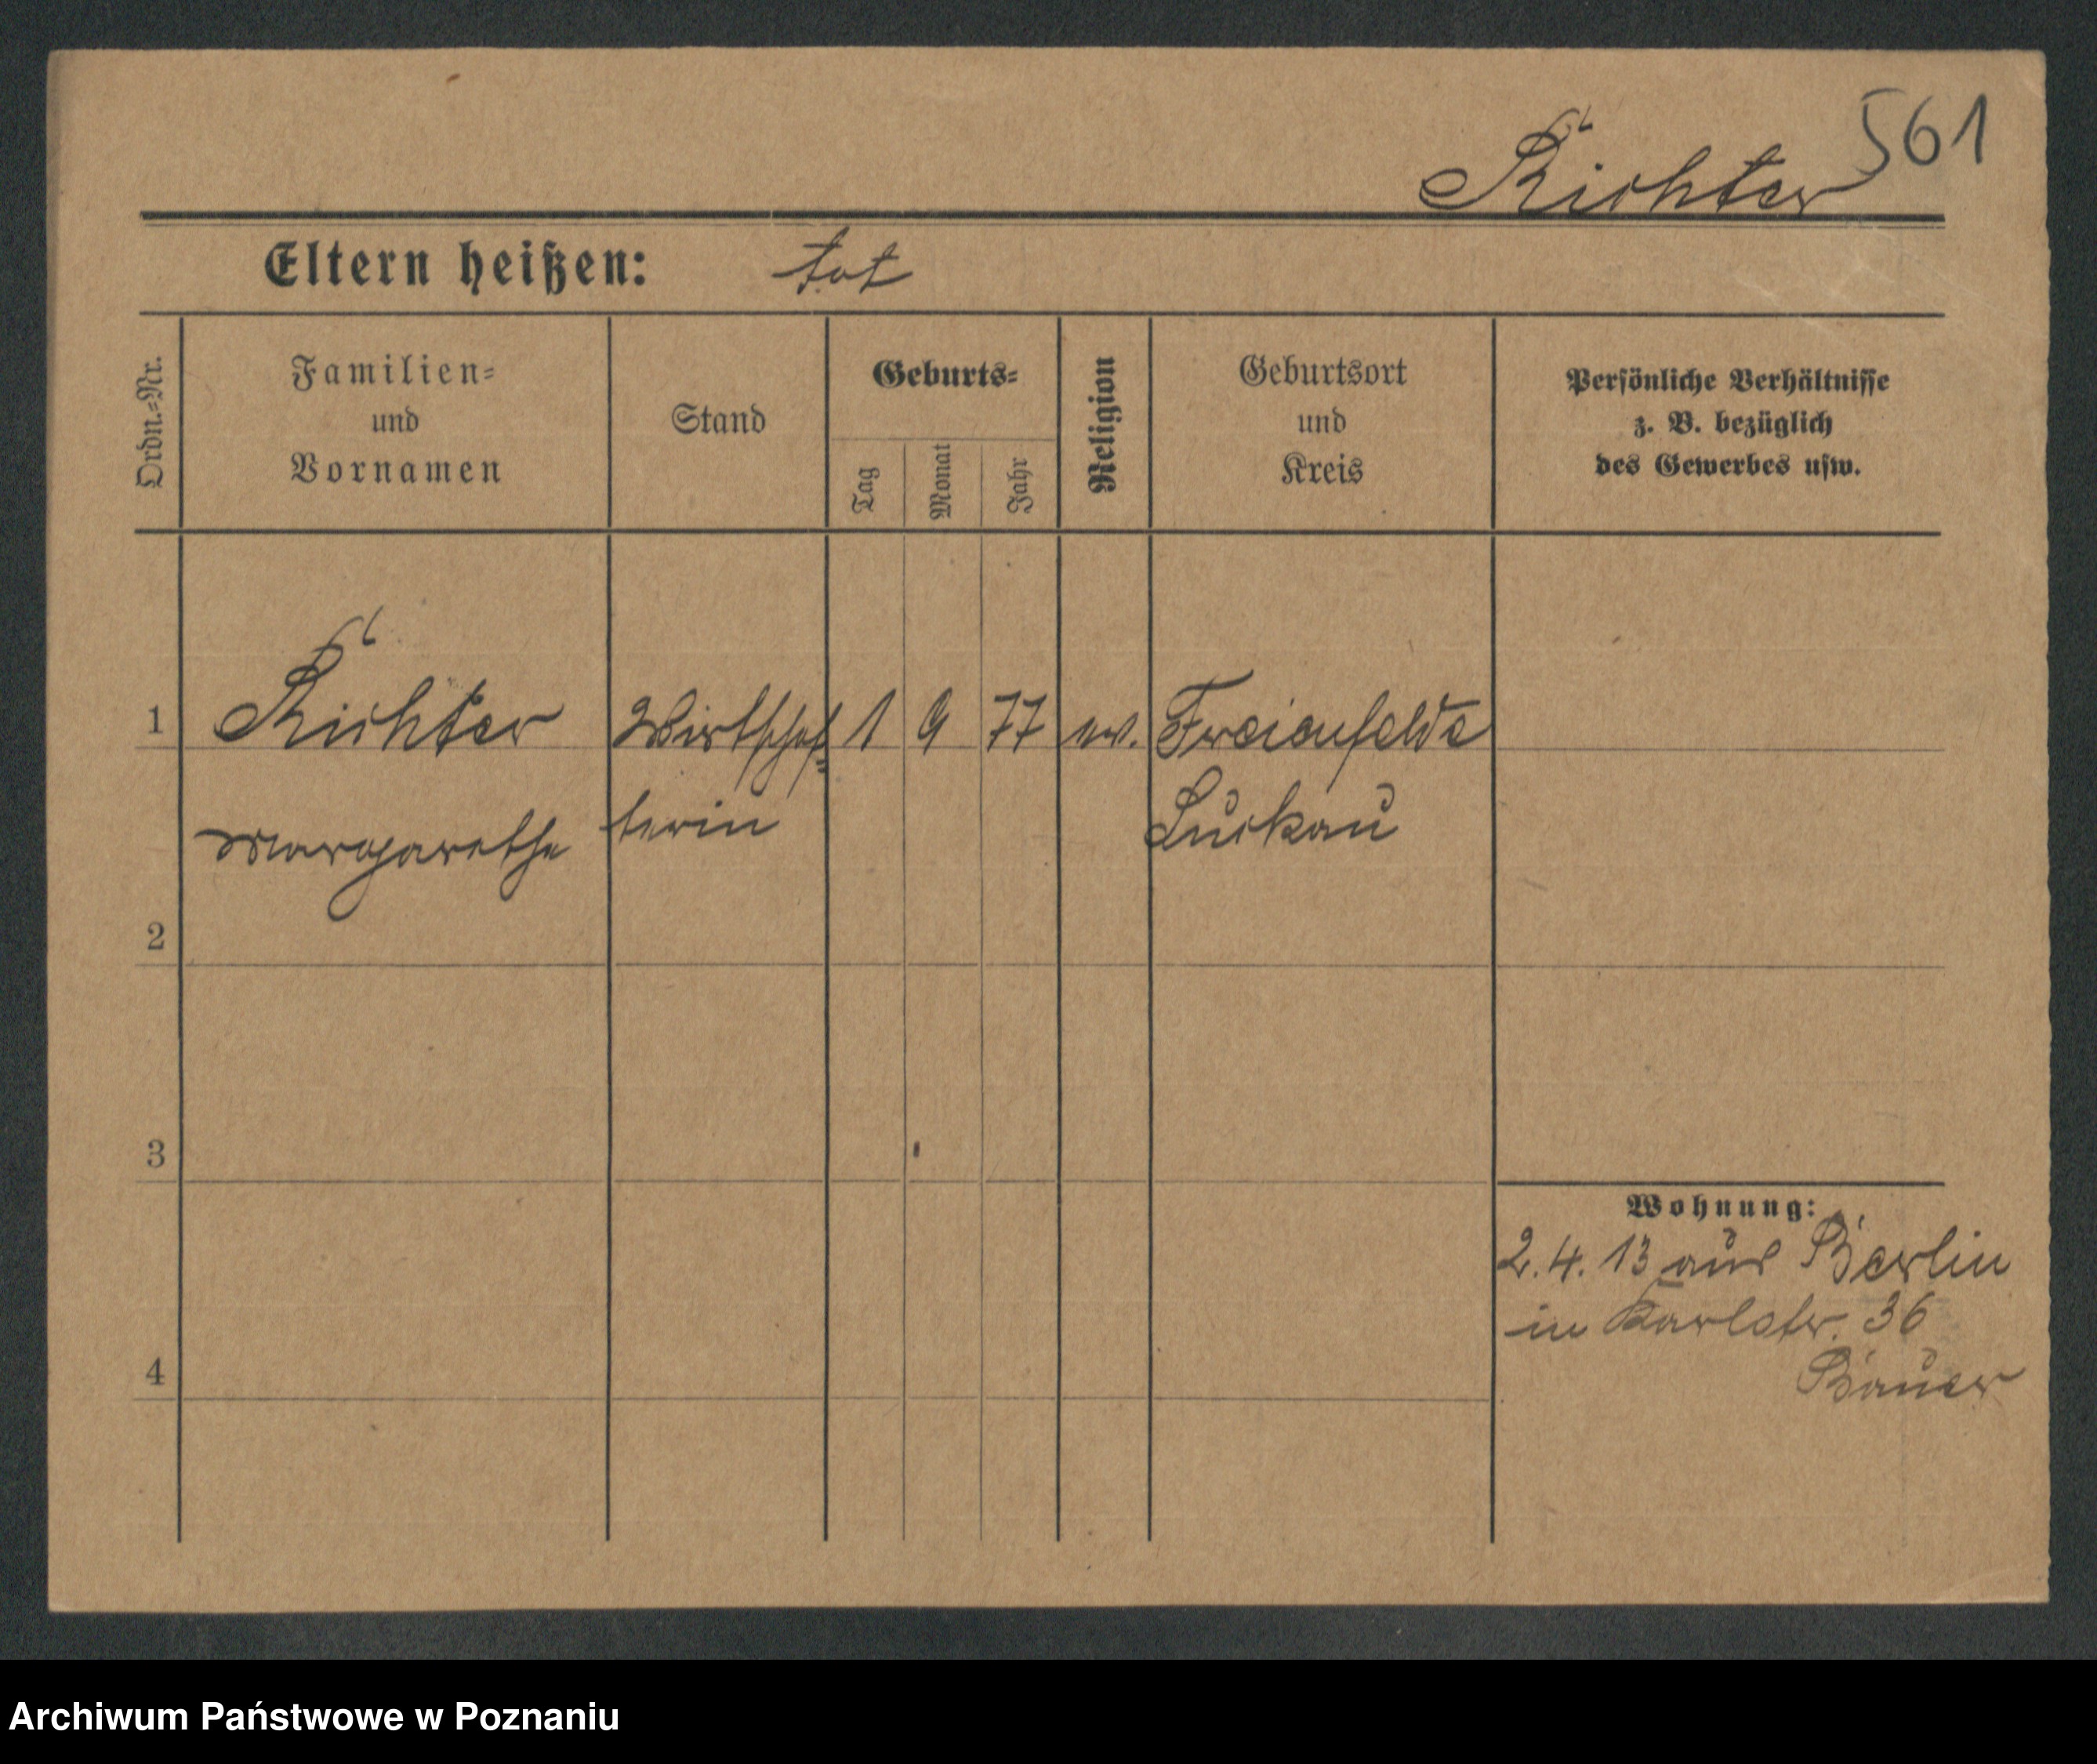 561
Richter
Eltern heißen: tot
Ordn.-Nr.
Familien-
und
Vornamen
Stand
Geburts-
Tag
Monat
Jahr
Religion
Geburtsort
und
Kreis
Persönliche Verhältnisse
z. B. bezüglich
des Gewerbes usw.
1 Richter Wirtschaf= 1 9 77 ev. Freienfelde
Margarethe terin Luckau
2
3
Wohnung:
2.4.13 aus Berlin
in Karlstr. 36
Bauer
4
Archiwum Państwowe w Poznaniu